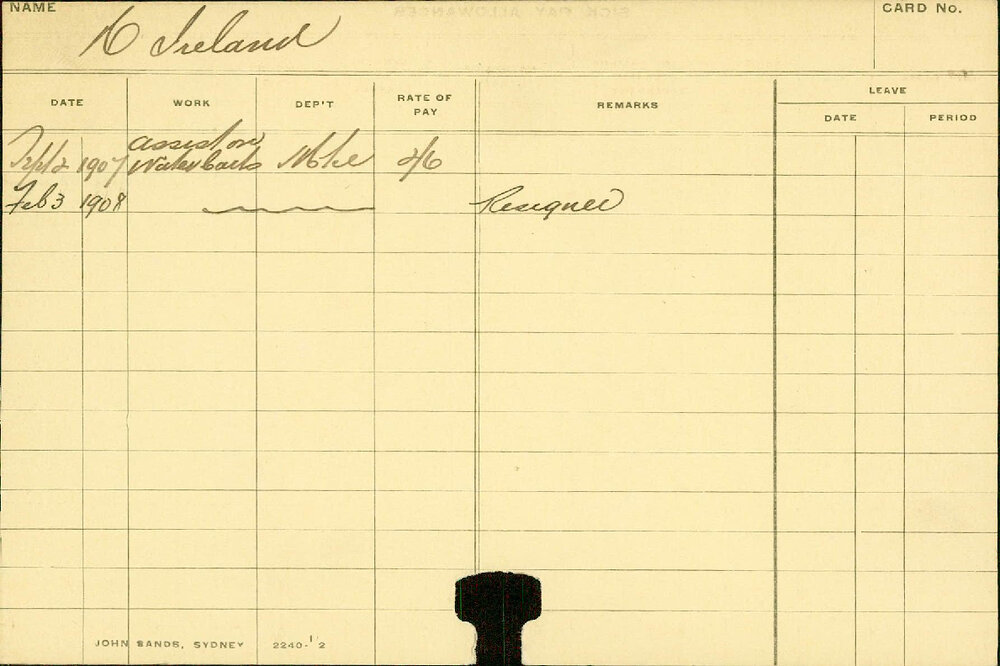 NAME
Ireland
CARD No.
SICK PAY ALLOWANCES
DATE WORK DEP'T RATE OF PAY REMARKS LEAVE
DATE PERIOD
assist on
Sept 2 1907 Water Carts 2/6
Feb 3 1908 Resigned
JOHN SANDS, SYDNEY 2240-12